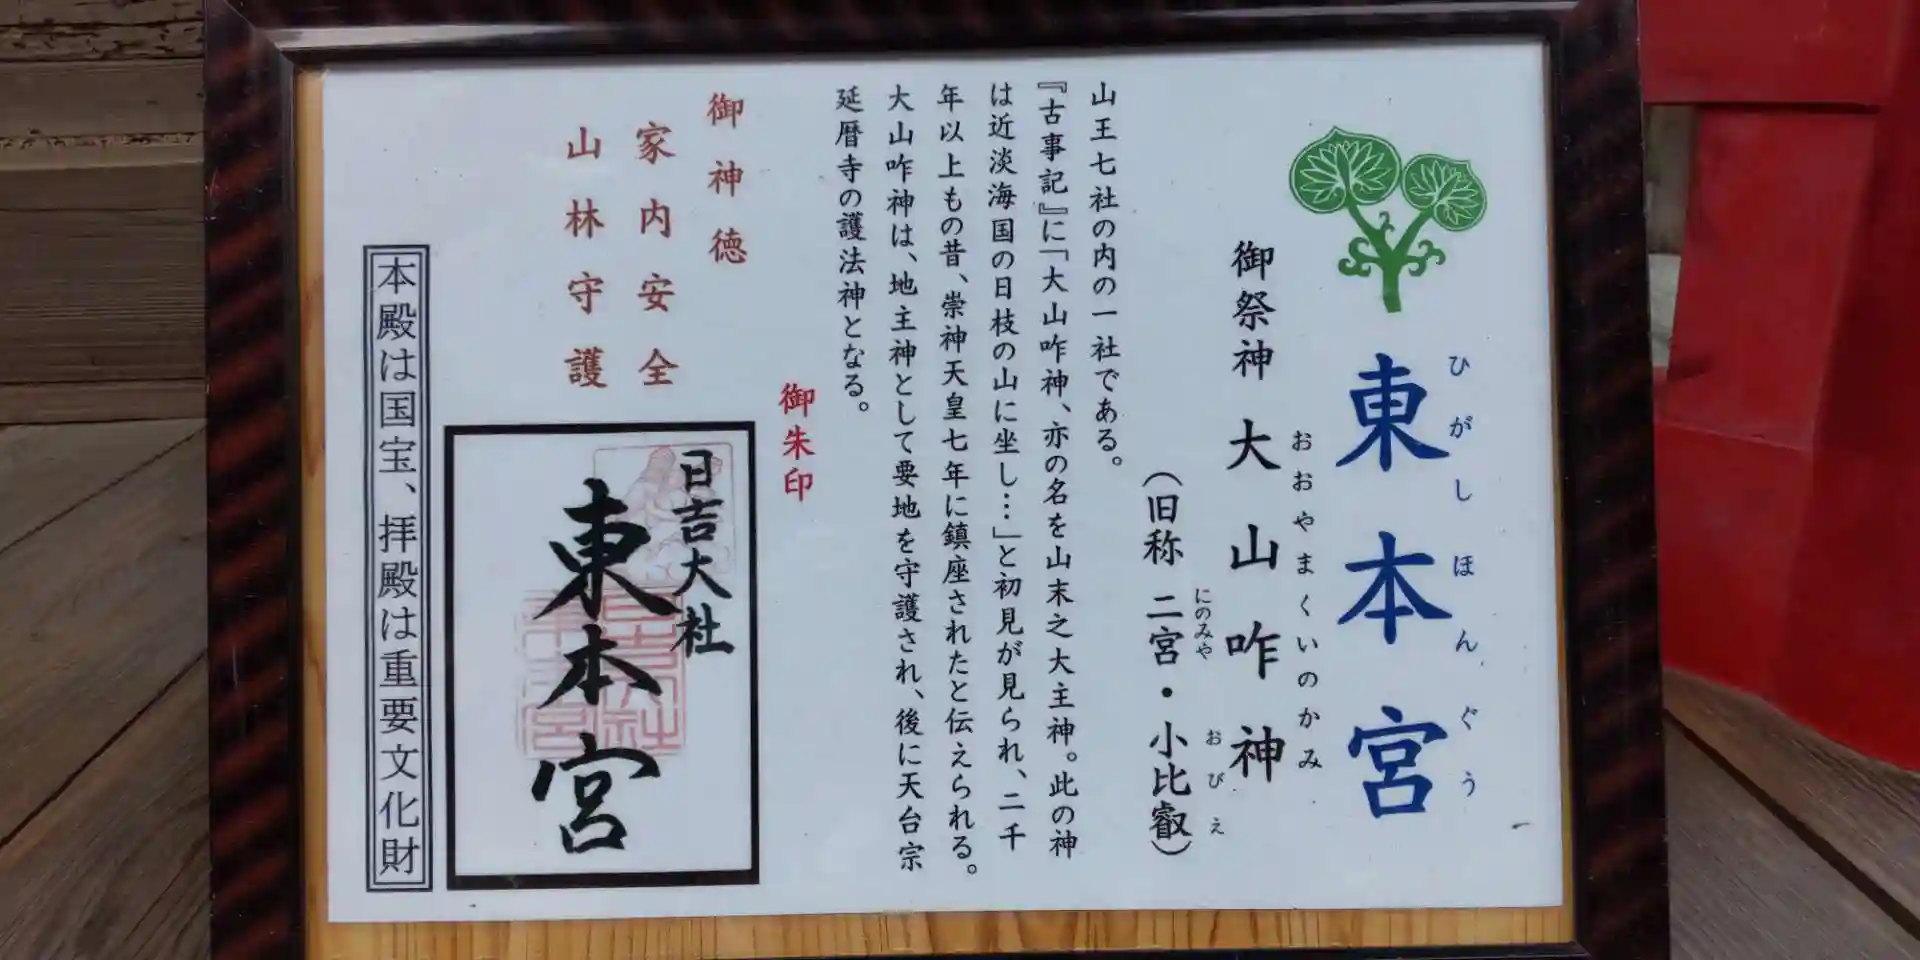 東本宮
ひがしほんぐう
御祭神 大山咋神
おおやまくいのかみ
(旧称 二宮・小比叡)
にのみや おびえ
山王七社の内の一社である。
『古事記』に「大山咋神、亦の名を山末之大主神。此の神
は近淡海国の日枝の山に坐し…」と初見が見られ、二千
年以上もの昔、崇神天皇七年に鎮座されたと伝えられる。
大山咋神は、地主神として要地を守護され、後に天台宗
延暦寺の護法神となる。
御神徳
家内安全
山林守護
御朱印
日吉大社
東本宮
本殿は国宝、拝殿は重要文化財